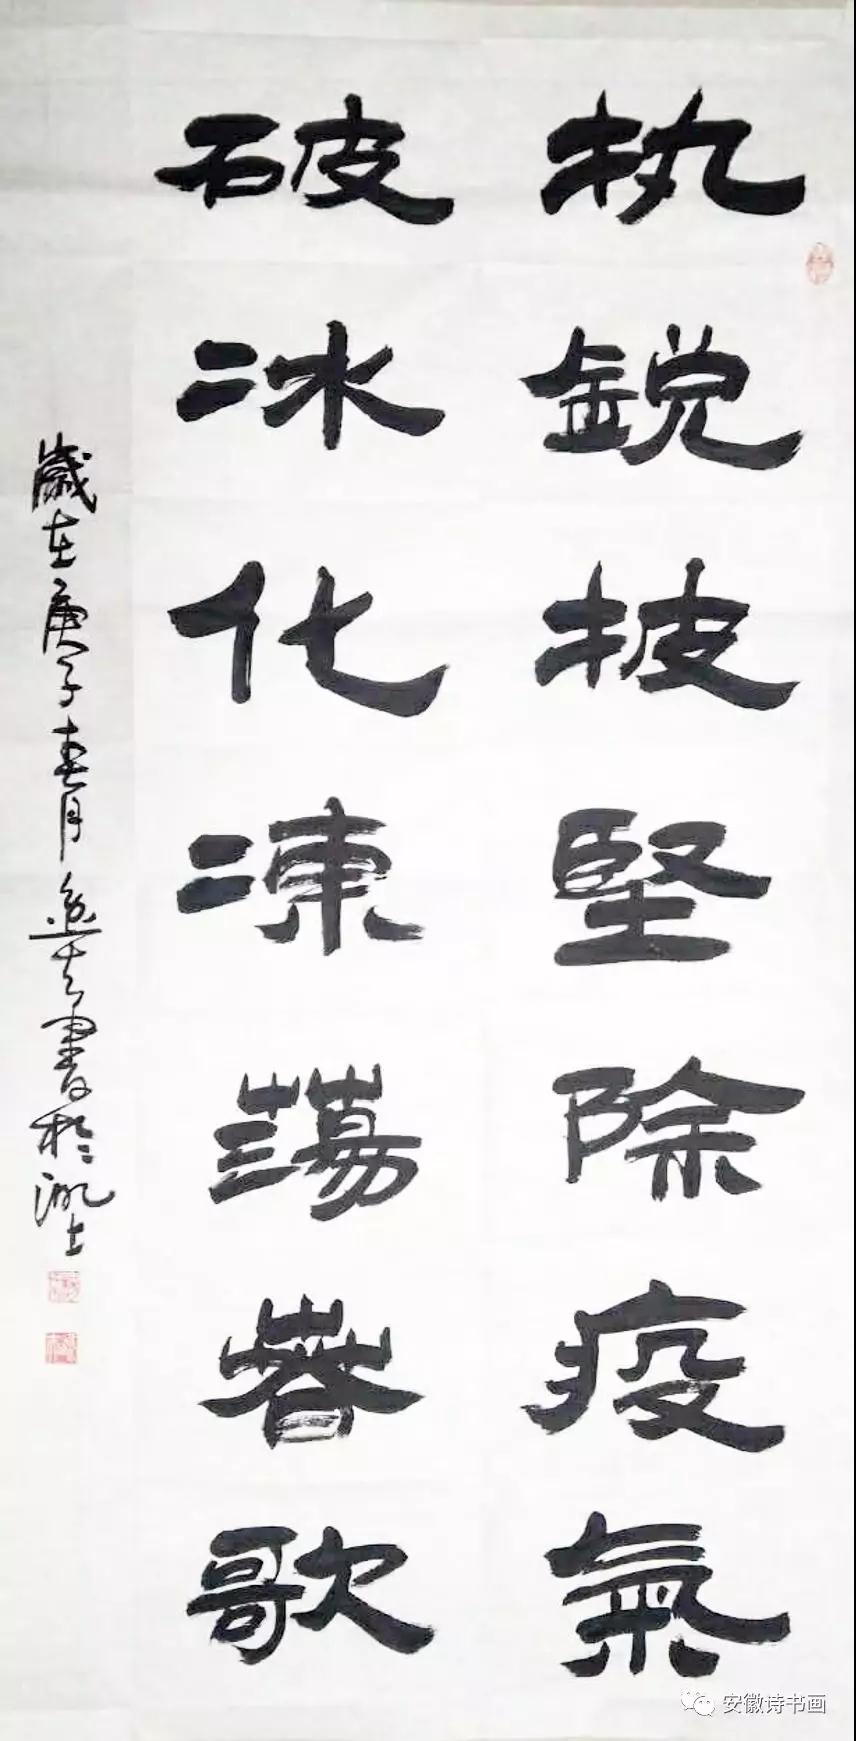 执锐披坚除疫氣
破冰化凍蕩春歌
歲在庚子春月逸夫書於淝上
安徽诗书画